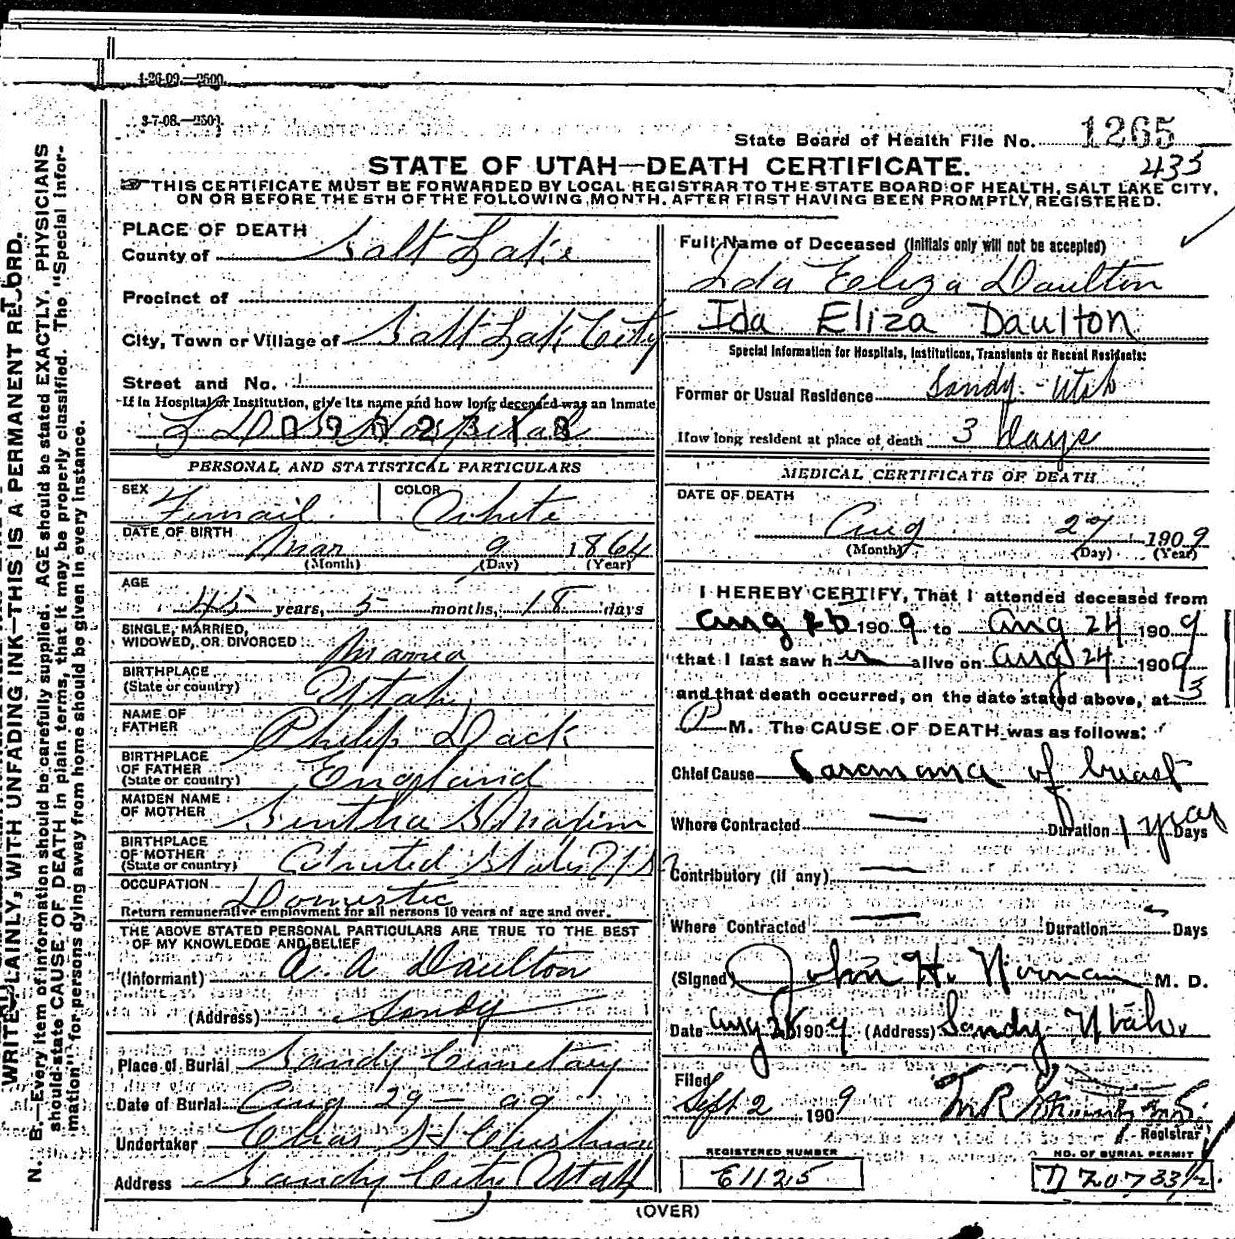 1-26-09.—2500.
3-7-08.—250
State Board of Health File No. 1265
433
STATE OF UTAH—DEATH CERTIFICATE.
THIS CERTIFICATE MUST BE FORWARDED BY LOCAL REGISTRAR TO THE STATE BOARD OF HEALTH, SALT LAKE CITY,
ON OR BEFORE THE 5TH OF THE FOLLOWING MONTH, AFTER FIRST HAVING BEEN PROMPTLY REGISTERED.
PLACE OF DEATH
County of Salt Lake
Precinct of
City, Town or Village of Salt Lake City
Street and No.
If in Hospital or Institution, give its name and how long deceased was an Inmate
L D S Hospital
PERSONAL AND STATISTICAL PARTICULARS
SEX Femail COLOR White
DATE OF BIRTH Mar 9 1864
(Month) (Day) (Year)
AGE
45 years, 5 months, 18 days
SINGLE, MARRIED,
WIDOWED, OR DIVORCED
BIRTHPLACE
(State or country) Utah
NAME OF
FATHER Philip Dack
BIRTHPLACE
OF FATHER
(State or country) England
MAIDEN NAME
OF MOTHER
BIRTHPLACE
OF MOTHER
(State or country) United States
OCCUPATION Domestic
Return remunerative employment for all persons 10 years of age and over.
THE ABOVE STATED PERSONAL PARTICULARS ARE TRUE TO THE BEST
OF MY KNOWLEDGE AND BELIEF
(Informant) A. A Daulton
(Address) Sandy
Place of Burial Sandy Cimetary
Date of Burial Aug 29 — 09
Undertaker
Address Sandy City Utah
Full Name of Deceased (Initials only will not be accepted)
Ida Eliza Daulton
Ida Eliza Daulton
Special Information for Hospitals, Institutions, Transients or Recent Residents:
Former or Usual Residence Sandy - Utah
How long resident at place of death 3 Days
MEDICAL CERTIFICATE OF DEATH
DATE OF DEATH
Aug 27 1909
(Month) (Day) (Year)
I HEREBY CERTIFY, That I attended deceased from
Aug 1909 to Aug 24 1909
that I last saw her alive on Aug 24 1909
and that death occurred, on the date stated above, at 3
P M. The CAUSE OF DEATH was as follows:
Chief Cause of breast
Where Contracted — Duration 1 year Days
Contributory (if any) —
Where Contracted — Duration Days
(Signed) John H. Norman M. D.
Date Aug 28 1909 (Address) Sandy Utah.
Filed
Sept 2 1909
Registrar
REGISTERED NUMBER
E1125
NO. OF BURIAL PERMIT
(OVER)
WRITE PLAINLY, WITH UNFADING INK—THIS IS A PERMANENT RECORD.
N. B.—Every item of information should be carefully supplied. AGE should be stated EXACTLY. PHYSICIANS
should state CAUSE OF DEATH in plain terms, that it may be properly classified. The "Special Infor-
mation" for persons dying away from home should be given in every instance.